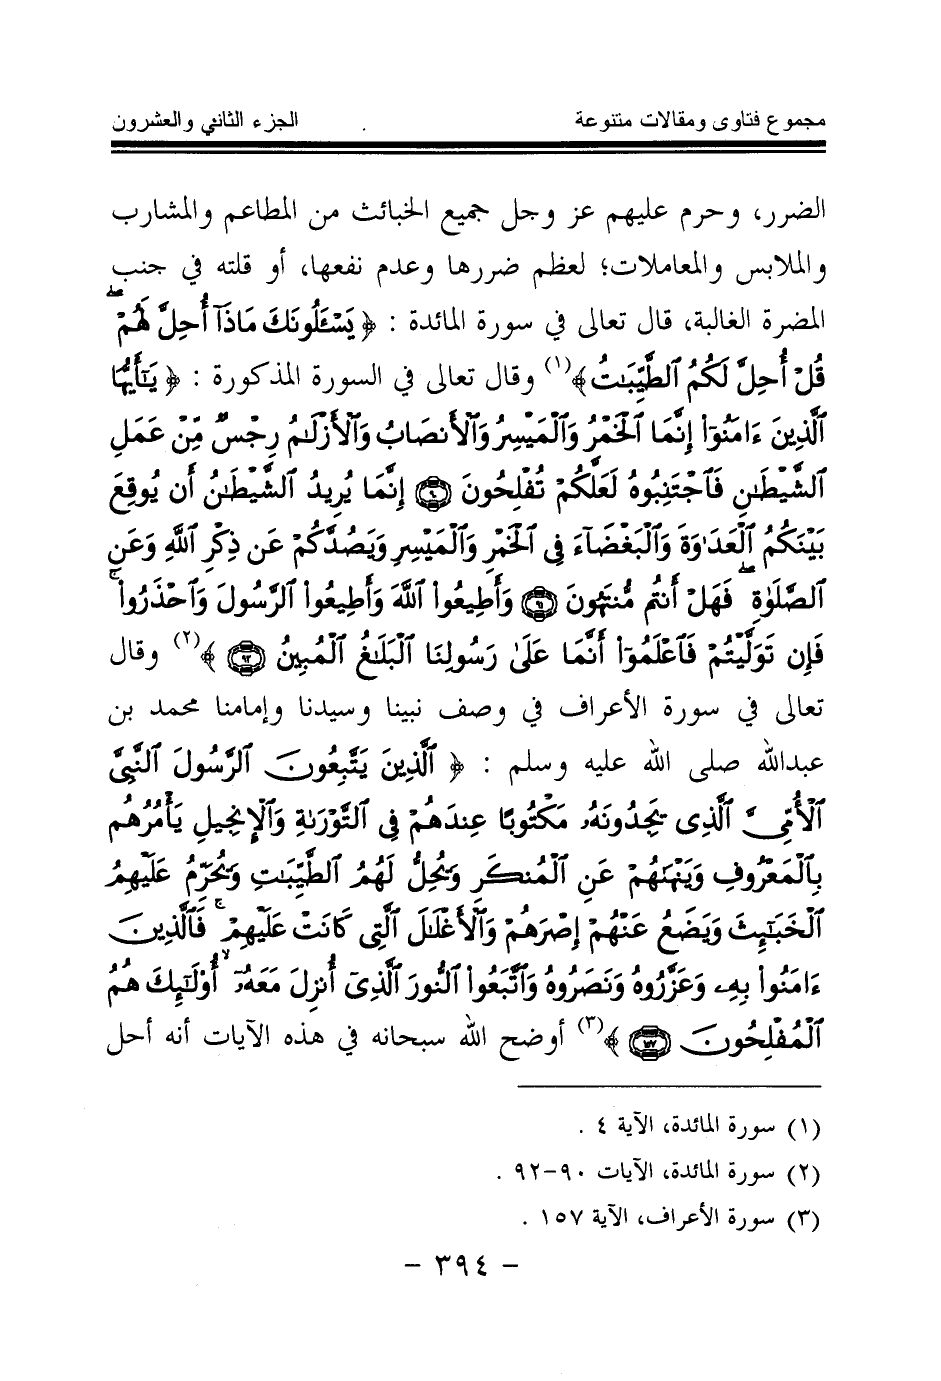 مجموع فتاوى ومقالات متنوعة الجزء الثاني والعشرون
الضرر، وحرم عليهم عز وجل جميع الخبائث من المطاعم والمشارب
والملابس والمعاملات؛ لعظم ضررها وعدم نفعها، أو قلته في جنب
المضرة الغالبة، قال تعالى في سورة المائدة : ﴿ يَسْـَٔلُونَكَ مَاذَآ أُحِلَّ لَهُمْ ۖ
قُلْ أُحِلَّ لَكُمُ ٱلطَّيِّبَـٰتُ ﴾(١) وقال تعالى في السورة المذكورة : ﴿ يَـٰٓأَيُّهَا
ٱلَّذِينَ ءَامَنُوٓا۟ إِنَّمَا ٱلْخَمْرُ وَٱلْمَيْسِرُ وَٱلْأَنصَابُ وَٱلْأَزْلَـٰمُ رِجْسٌ مِّنْ عَمَلِ
ٱلشَّيْطَـٰنِ فَٱجْتَنِبُوهُ لَعَلَّكُمْ تُفْلِحُونَ ۝ إِنَّمَا يُرِيدُ ٱلشَّيْطَـٰنُ أَن يُوقِعَ
بَيْنَكُمُ ٱلْعَدَٰوَةَ وَٱلْبَغْضَآءَ فِى ٱلْخَمْرِ وَٱلْمَيْسِرِ وَيَصُدَّكُمْ عَن ذِكْرِ ٱللَّهِ وَعَنِ
ٱلصَّلَوٰةِ ۖ فَهَلْ أَنتُم مُّنتَهُونَ ۝ وَأَطِيعُوا۟ ٱللَّهَ وَأَطِيعُوا۟ ٱلرَّسُولَ وَٱحْذَرُوا۟ ۚ
فَإِن تَوَلَّيْتُمْ فَٱعْلَمُوٓا۟ أَنَّمَا عَلَىٰ رَسُولِنَا ٱلْبَلَـٰغُ ٱلْمُبِينُ ۝٩٢ ﴾(٢) وقال
تعالى في سورة الأعراف في وصف نبينا وسيدنا وإمامنا محمد بن
عبدالله صلى الله عليه وسلم : ﴿ ٱلَّذِينَ يَتَّبِعُونَ ٱلرَّسُولَ ٱلنَّبِىَّ
ٱلْأُمِّىَّ ٱلَّذِى يَجِدُونَهُۥ مَكْتُوبًا عِندَهُمْ فِى ٱلتَّوْرَىٰةِ وَٱلْإِنجِيلِ يَأْمُرُهُم
بِٱلْمَعْرُوفِ وَيَنْهَىٰهُمْ عَنِ ٱلْمُنكَرِ وَيُحِلُّ لَهُمُ ٱلطَّيِّبَـٰتِ وَيُحَرِّمُ عَلَيْهِمُ
ٱلْخَبَـٰٓئِثَ وَيَضَعُ عَنْهُمْ إِصْرَهُمْ وَٱلْأَغْلَـٰلَ ٱلَّتِى كَانَتْ عَلَيْهِمْ ۚ فَٱلَّذِينَ
ءَامَنُوا۟ بِهِۦ وَعَزَّرُوهُ وَنَصَرُوهُ وَٱتَّبَعُوا۟ ٱلنُّورَ ٱلَّذِىٓ أُنزِلَ مَعَهُۥٓ ۙ أُو۟لَـٰٓئِكَ هُمُ
ٱلْمُفْلِحُونَ ۝١٥٧ ﴾(٣) أوضح الله سبحانه في هذه الآيات أنه أحل
(١) سورة المائدة، الآية ٤ .
(٢) سورة المائدة، الآيات ٩٠–٩٢ .
(٣) سورة الأعراف، الآية ١٥٧ .
– ٣٩٤ –